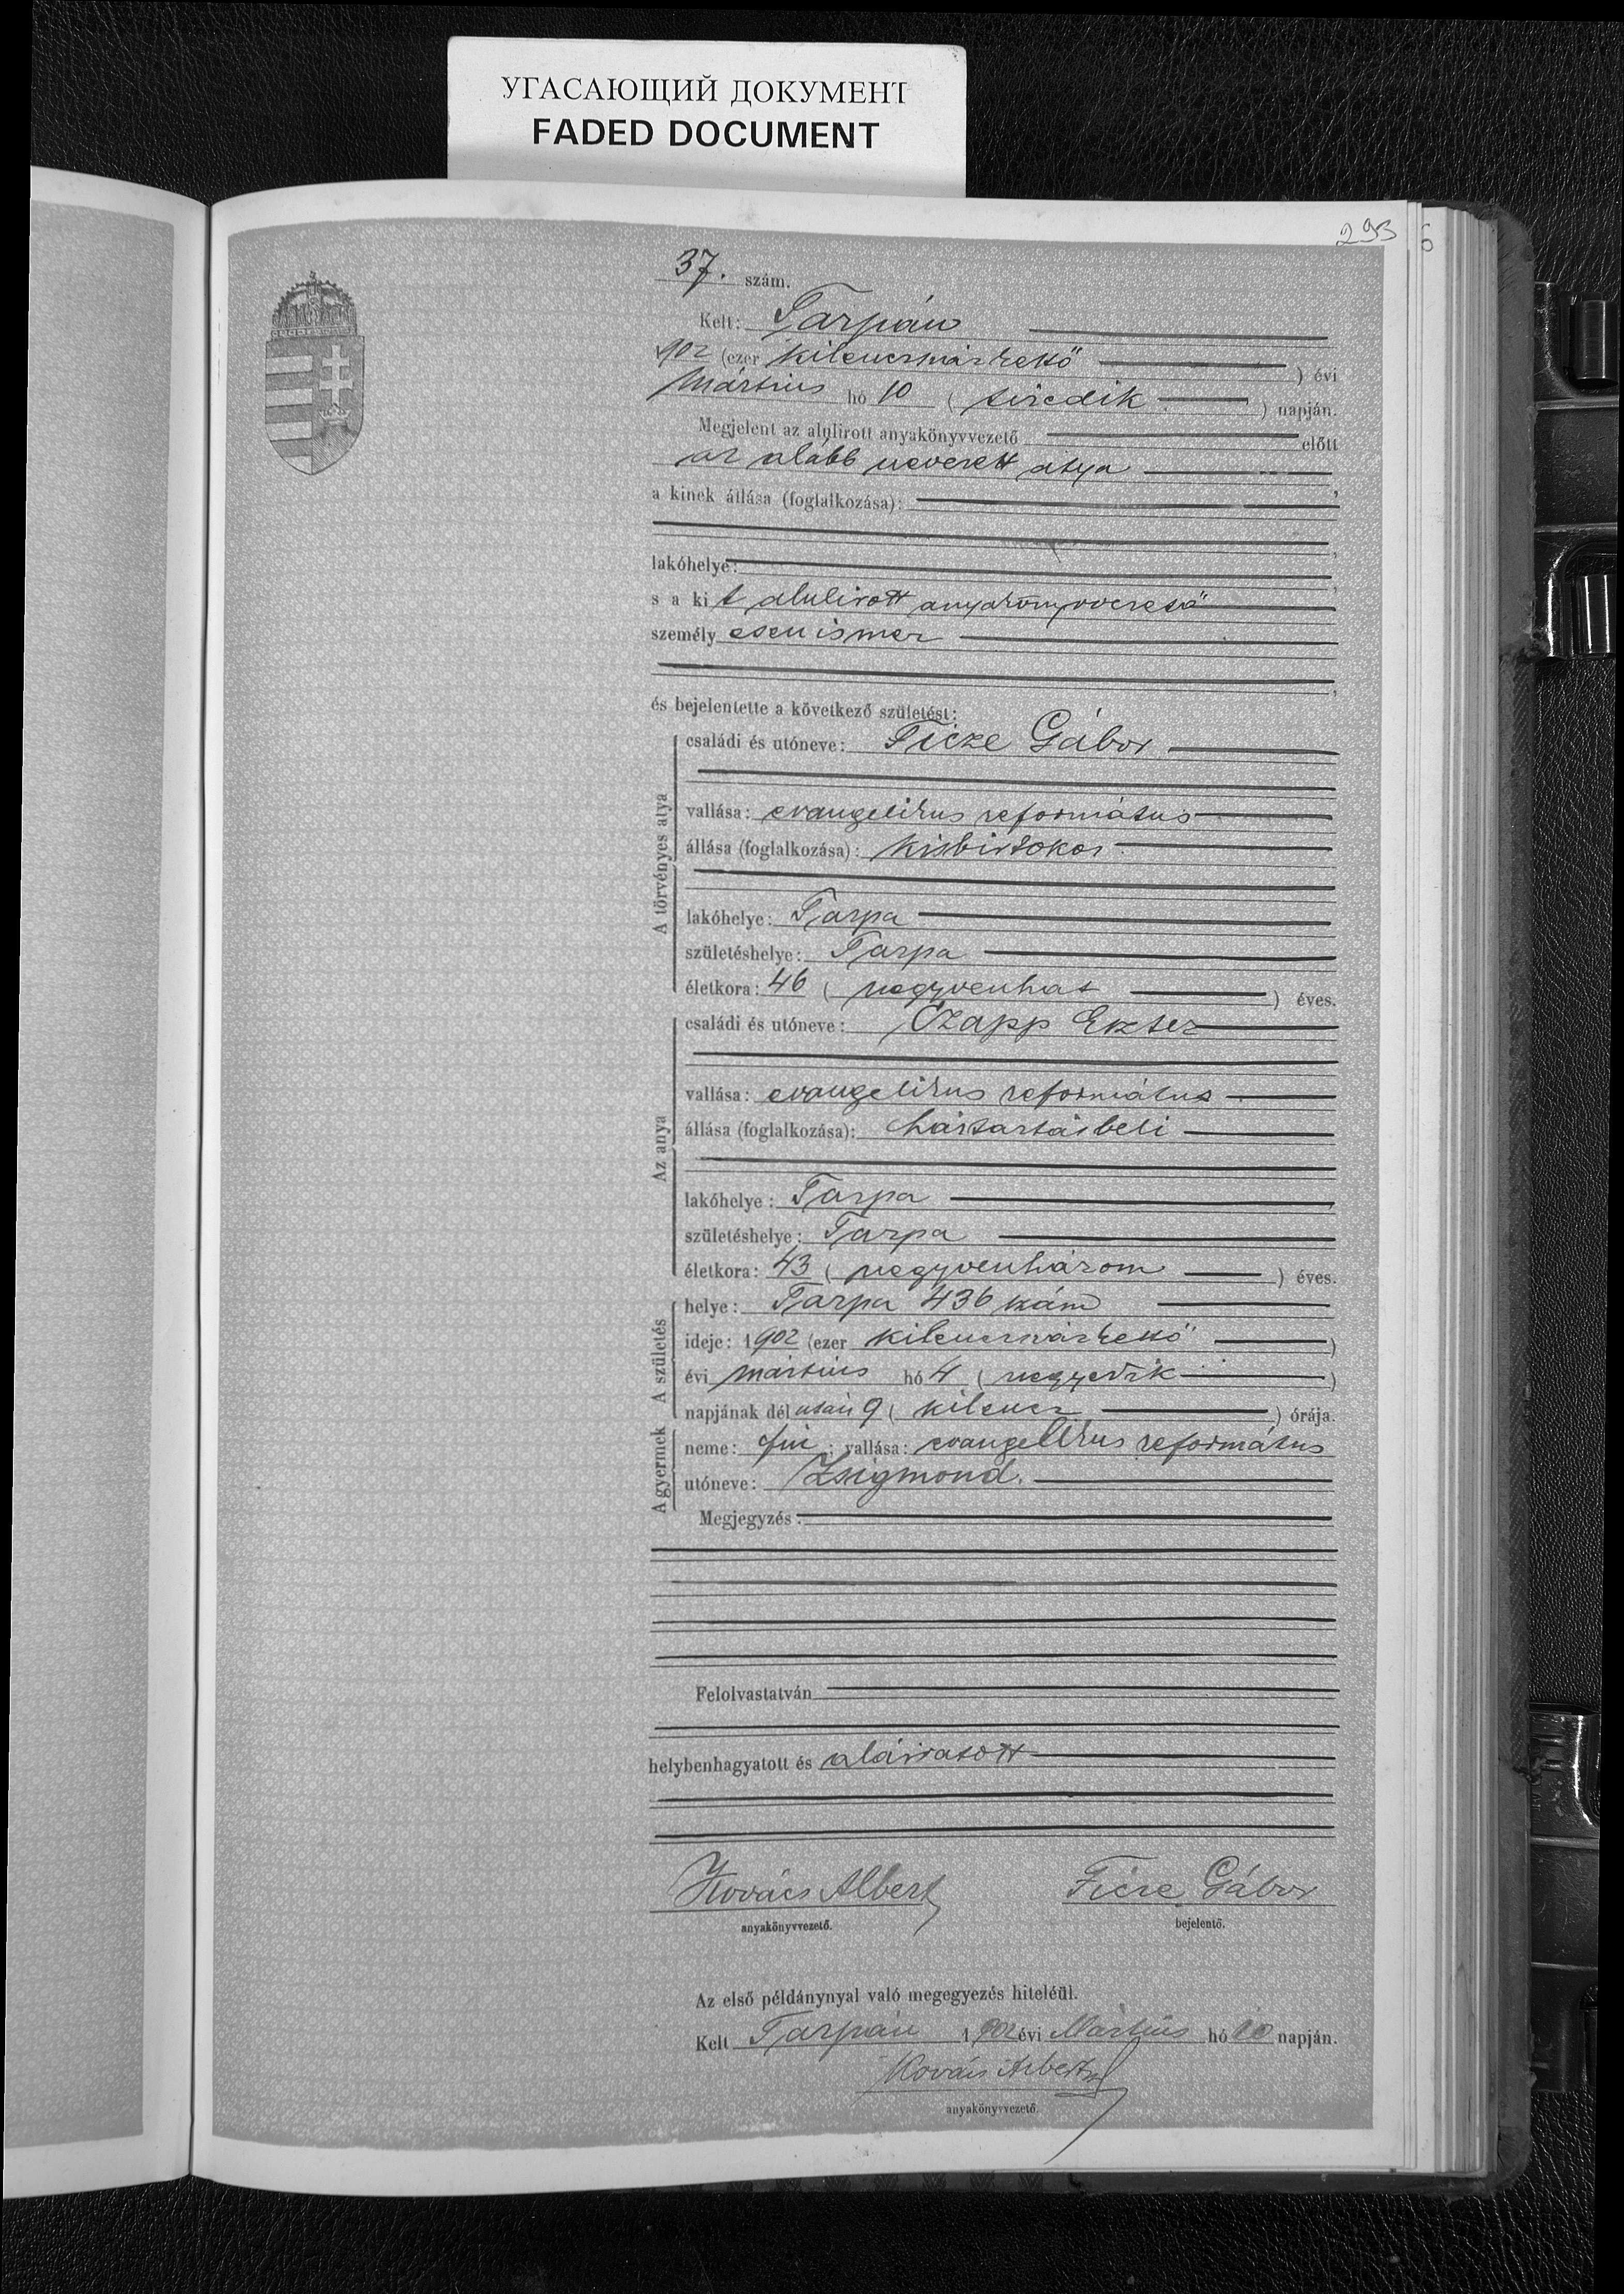 УГАСАЮЩИЙ ДОКУМЕНТ
FADED DOCUMENT
293
37. szám.
Kelt: Tarpán
1902 (ezer kilenczszázkettő) évi
Márczius hó 10 (tizedik) napján.
Megjelent az alulirott anyakönyvvezető előtt
az alább nevezett atya,
a kinek állása (foglalkozása):
lakóhelye:
s a kit alulirott anyakönyvvezető
személyesen ismer
és bejelentette a következő születést:
A törvényes atya
családi és utóneve: Ficze Gábor
vallása: evangelikus református
állása (foglalkozása): kisbirtokos
lakóhelye: Tarpa
születéshelye: Tarpa
életkora: 46 (negyvenhat) éves.
Az anya
családi és utóneve: Czapp Eszter
vallása: evangelikus református
állása (foglalkozása): háztartásbeli
lakóhelye: Tarpa
születéshelye: Tarpa
életkora: 43 (negyvenhárom) éves.
A születés
helye: Tarpa 436 szám
ideje: 1902 (ezer kilenczszázkettő)
évi márczius hó 4 (negyedik)
napjának dél után 9 (kilencz) órája.
A gyermek
neme: fiu; vallása: evangelikus református
utóneve: Zsigmond.
Megjegyzés:
Felolvastatván
helybenhagyatott és aláiratott
Kovács Albert Ficze Gábor
anyakönyvvezető. bejelentő.
Az első példánynyal való megegyezés hiteléül.
Kelt Tarpán 1902 évi Márczius hó 10 napján.
Kovács Albert
anyakönyvvezető.